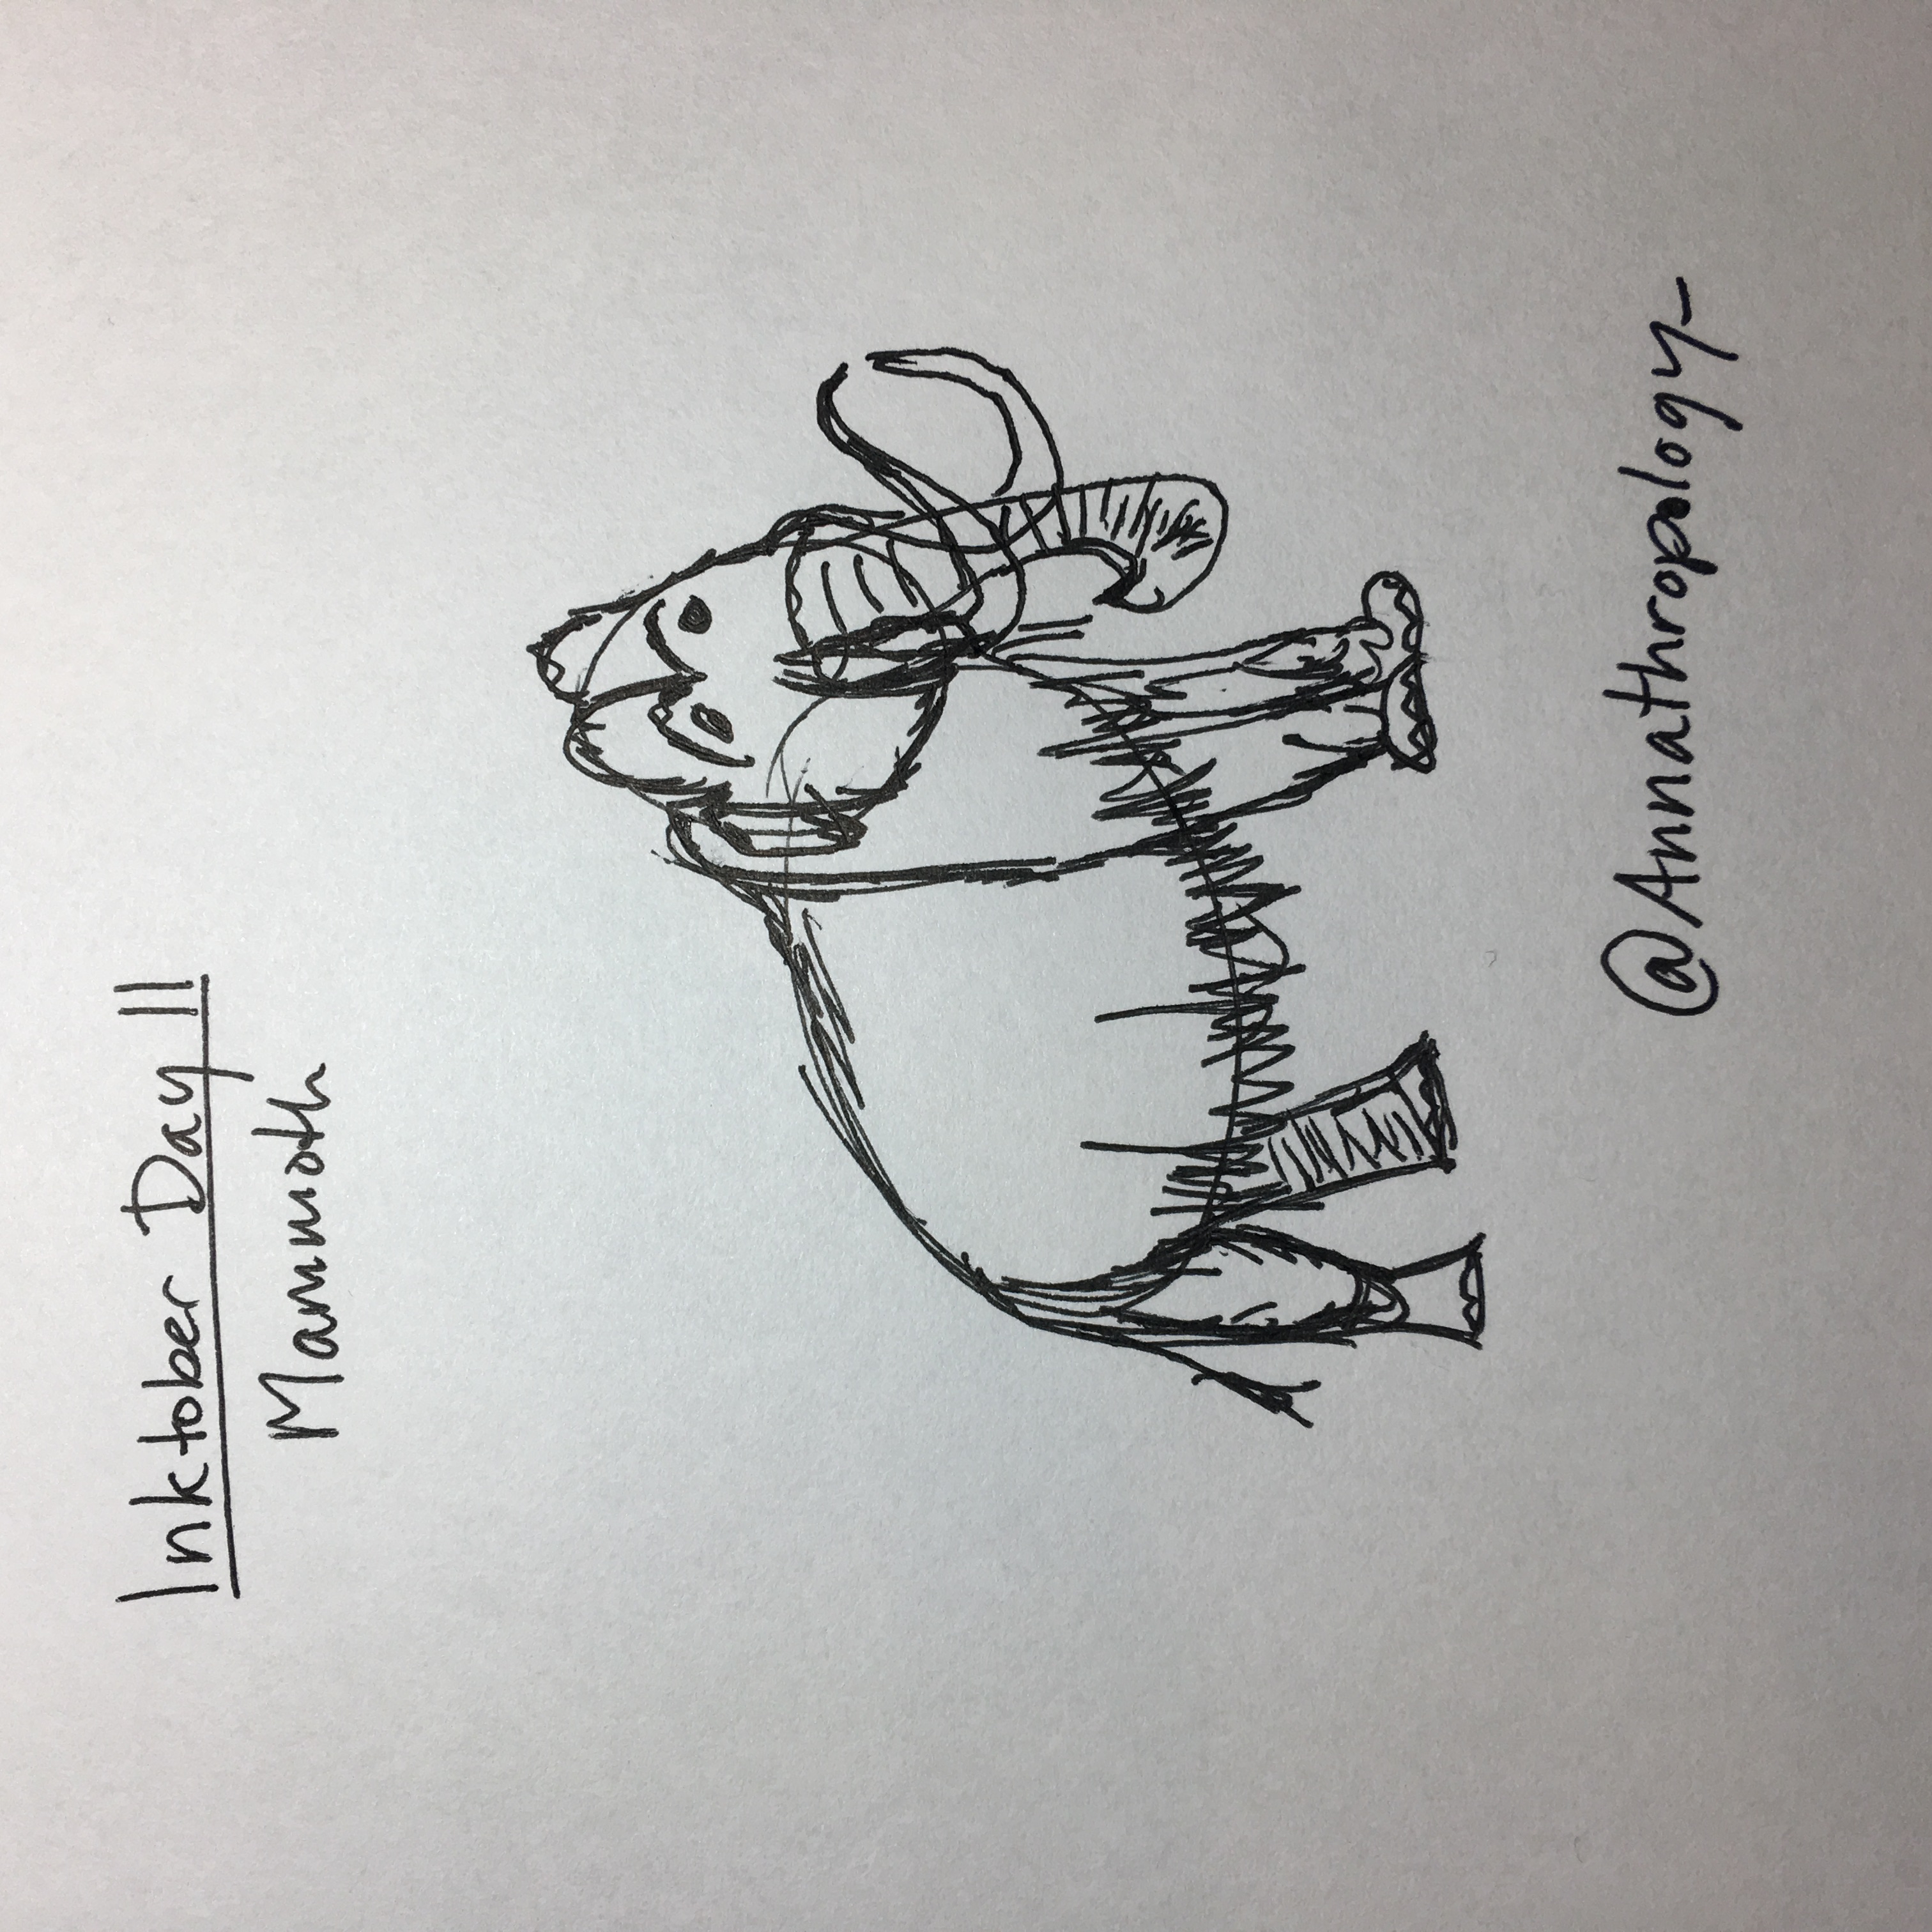 Inktober Day 11
Mammoth
@Annathropology_